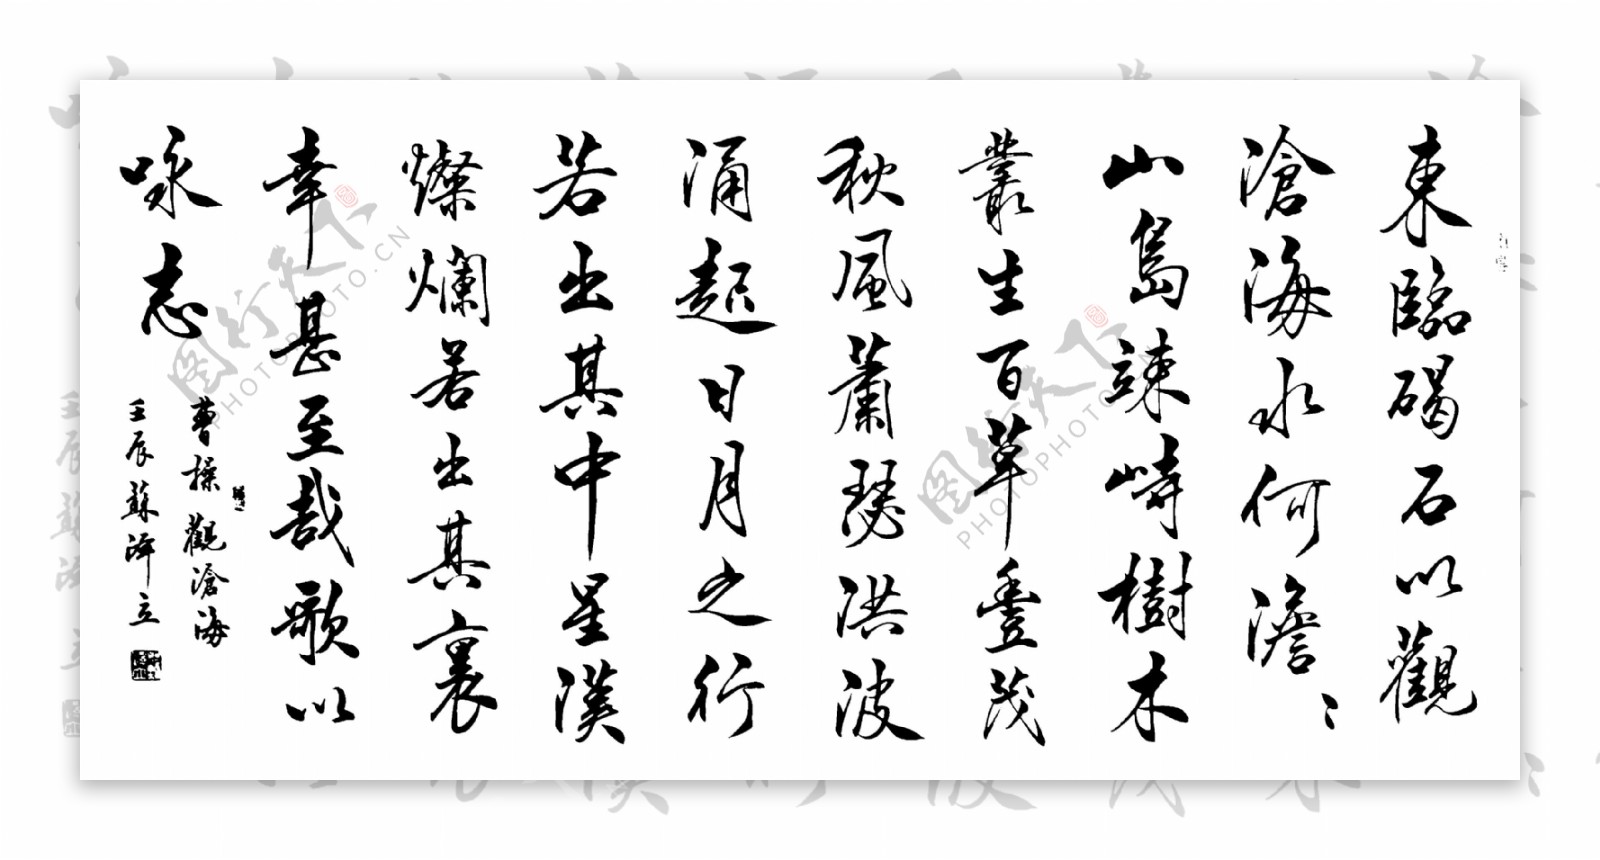 東臨碣石以觀
滄海水何澹〻
山島竦峙樹木
叢生百草豐茂
秋風蕭瑟洪波
涌起日月之行
若出其中星漢
燦爛若出其裏
幸甚至哉歌以
咏志
曹操觀滄海
壬辰蘇泽立
图行天下
PHOTOPHOTO.CN
图行天下
PHOTOPHOTO.CN